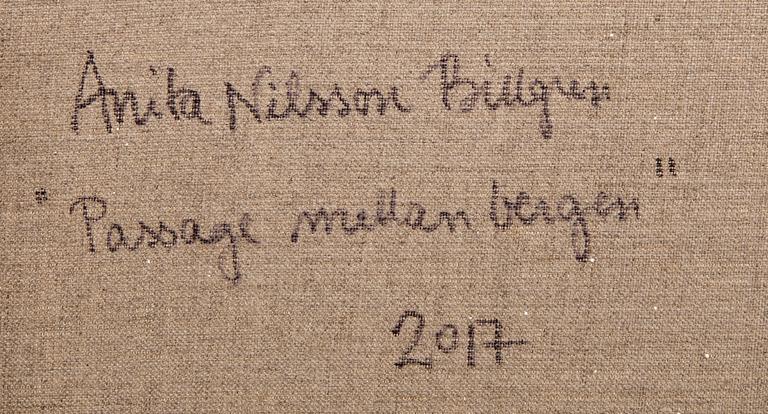 Anita Nilsson Billgren
"Passage mellan bergen"
2017